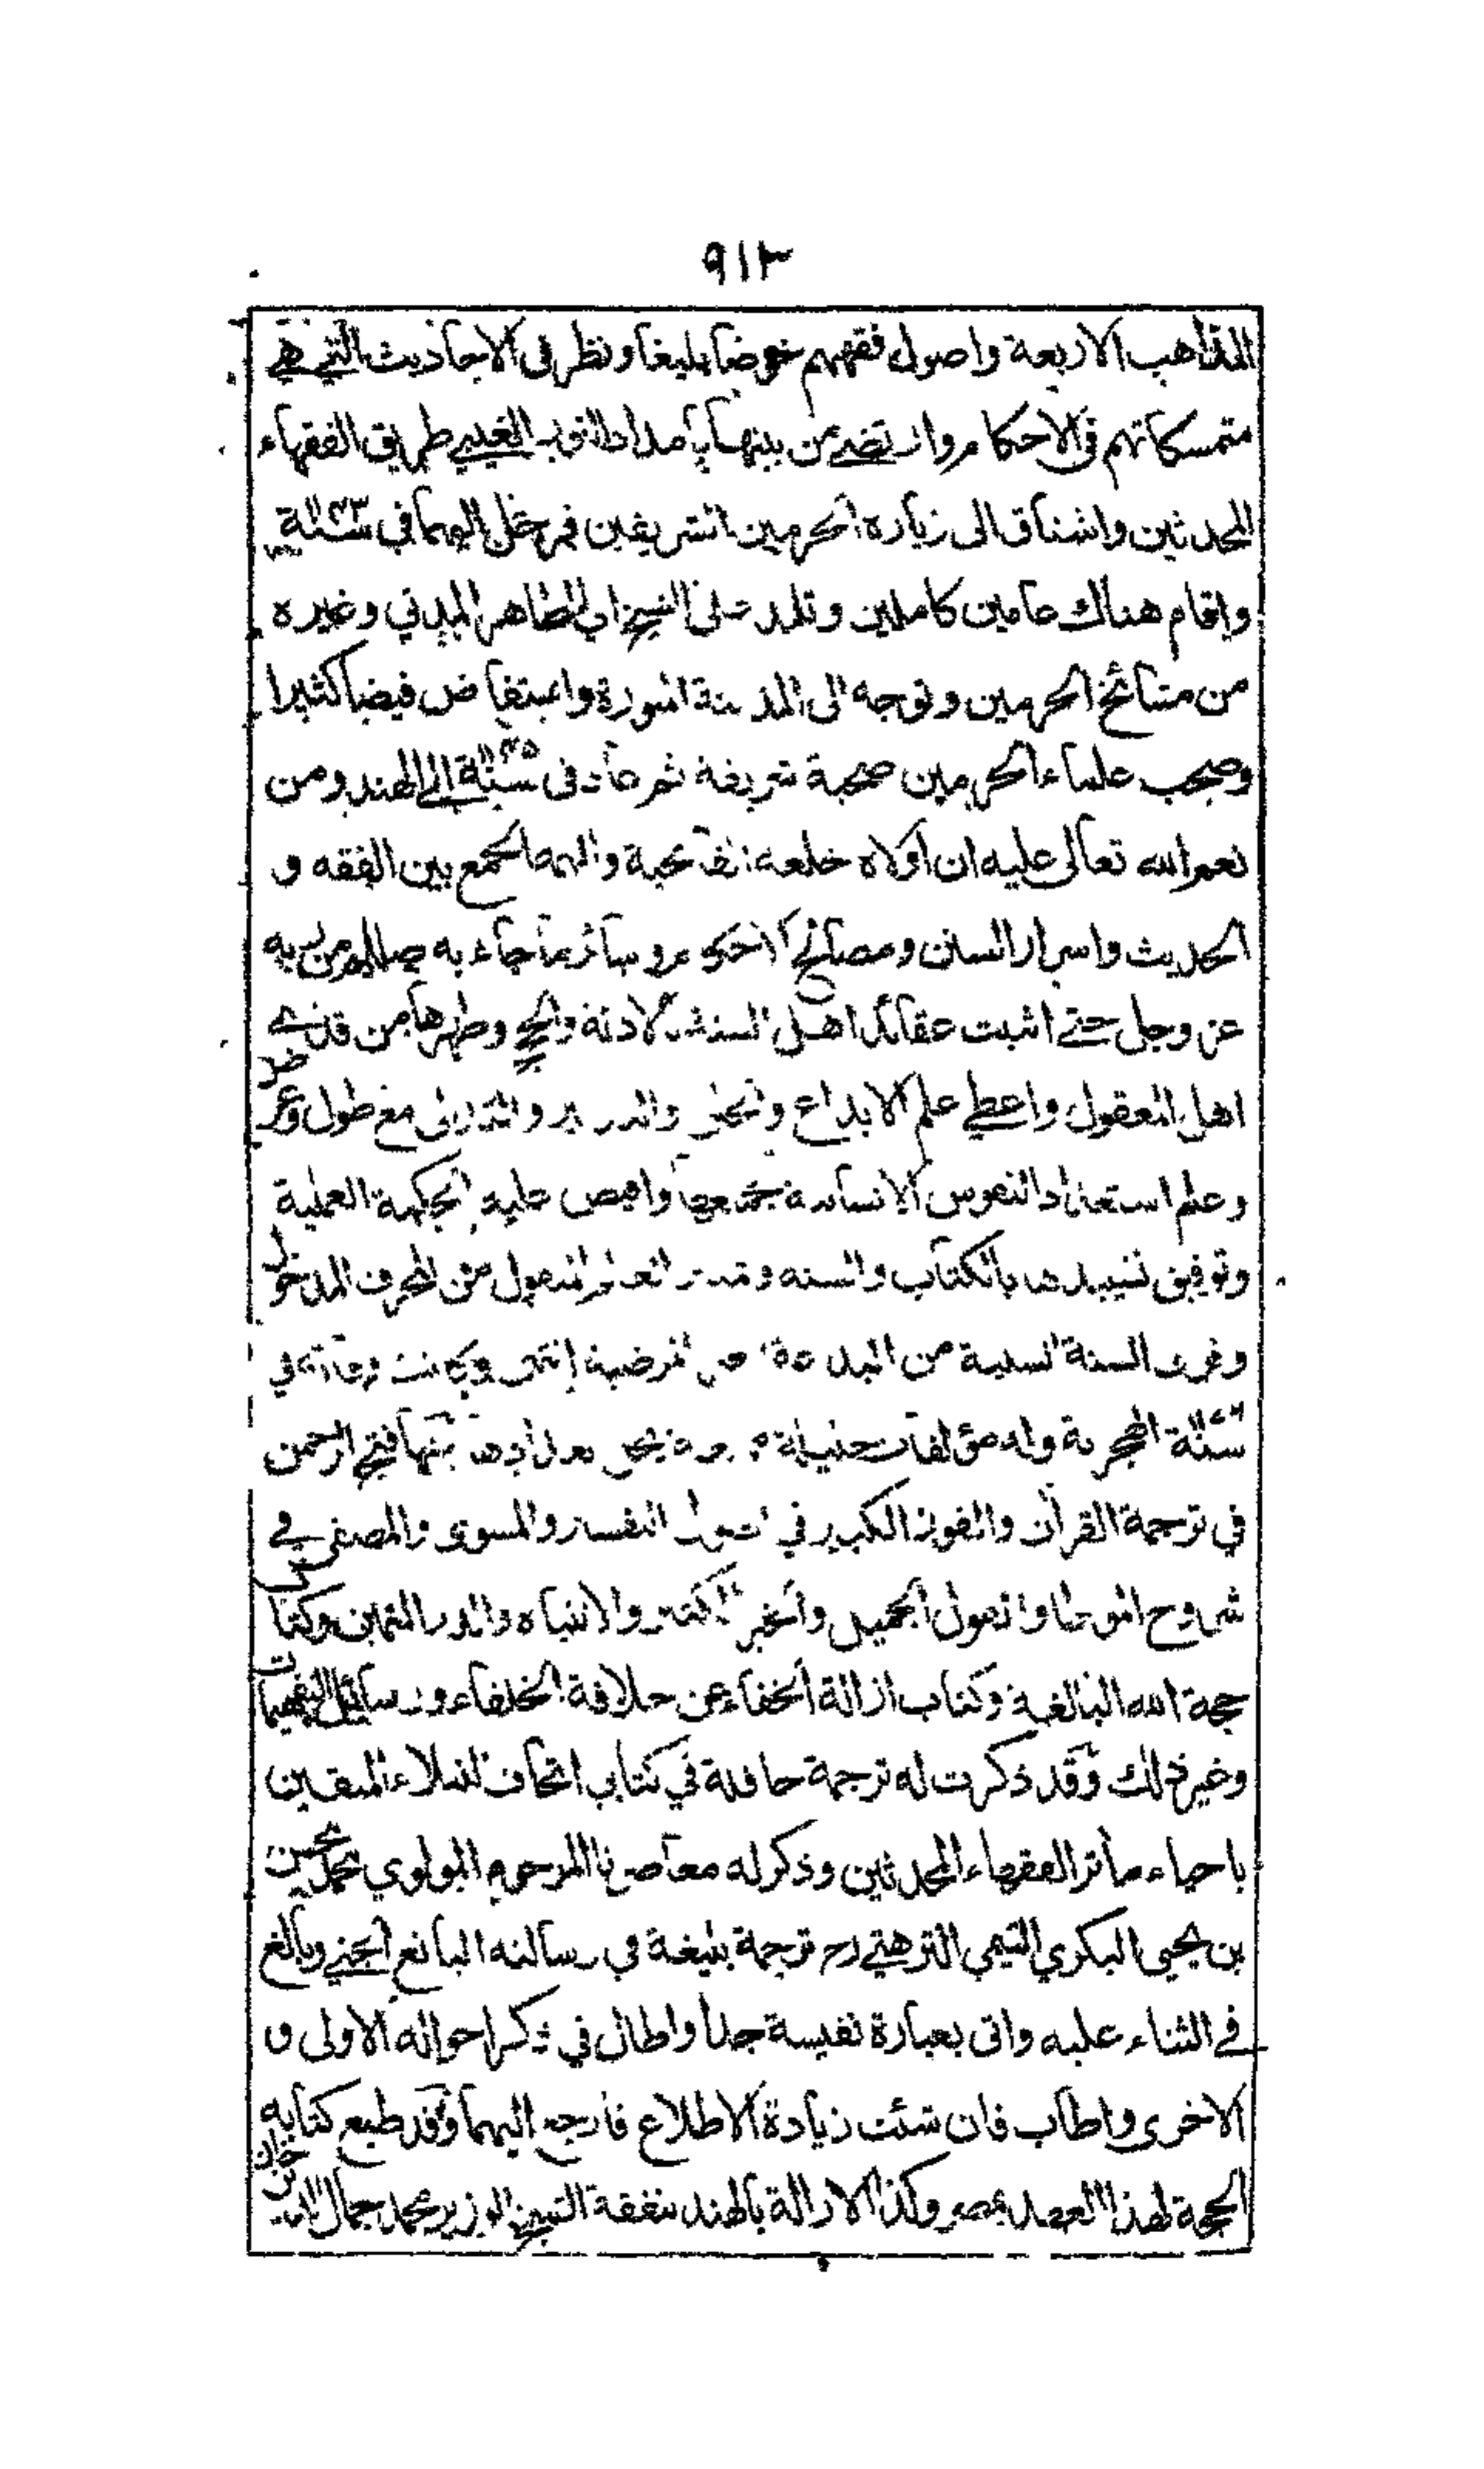 ٩١٣
المذاهب الاربعة واصول فقههم خوضا بليغا ونظر في الاحاديث التي هي
متمسكاتهم في الاحكام وارتضى من بينها بامداد النور الغيبي طريق الفقهاء
المحدثين واشتاق الى زيارة الحرمين الشريفين فرحل اليهما في سنة ١١٤٣
واقام هناك عامين كاملين وتلمذ على الشيخ ابي الطاهر المدني وغيره
من مشائخ الحرمين وتوجه الى المدينة المنورة واستفاض فيضا كثيرا
وصحب علماء الحرمين صحبة شريفة ثم عاد في سنة ١١٤٥ الى الهند ومن
نعم الله تعالى عليه ان اولاه خلعة الفاتحية والهمه الجمع بين الفقه و
الحديث واسرار السنن ومصالح الاحكام وسائر ما جاء به صللم من ربه
عز وجل حتى اثبت عقائد اهل السنة بالادلة والحجج وطهرها من قذى
اهل المعقول واعطي علم الابداع والخلق والتدبير والتدلى مع طول وعرض
وعلم استعداد النفوس الانسانية بجميعها وافيض عليه الحكمة العملية
وتوفيق تشييدها بالكتاب والسنة وتمييز العلم المنقول من المحرف المدخول
وفرق السنة السنية من البدعة غير المرضية إنتهى وكانت وفاته في
سنة ١١٧٦ الهجرية وله مؤلفات جليلة منها فتح الرحمن
في ترجمة القرآن والفوز الكبير في اصول التفسير والمسوى والمصفى في
شروح الموطا والقول الجميل والخير الكثير والانتباه والدر الثمين وكتاب
حجة الله البالغة وكتاب ازالة الخفاء عن خلافة الخلفاء ورسائل التفهيمات
وغير ذلك وقد ذكرت له ترجمة حافلة في كتابي اتحاف النبلاء المتقين
باحياء مآثر الفقهاء المحدثين وذكر له معاصرنا المرحوم المولوي محمد محسن
بن يحيى البكري التيمي الترهتي رح ترجمة بليغة في رسالته اليانع الجني وبالغ
في الثناء عليه واتى بعبارة نفيسة جدا واطال في ذكر احواله الاولى و
الاخرى واطاب فان شئت زيادة الاطلاع فارجع اليهما وقد طبع كتابه
الحجة لهذا العهد بمصر وكذا الازالة بالهند بنفقة الشيخ الوزير محمد جمال الدين خان